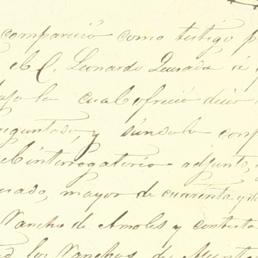 compareció como testigo p
el C. Leonardo Quesada a q
bajo la cual ofreció decir
eguntado y siéndole conf
el interrogatorio adjunto,
sado, mayor de cuarenta y d
Rancho de Amoles y contesta
los Ranchos de